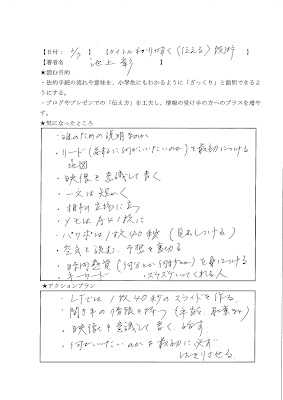 【日付: 5/7 】 【タイトル わかりやすく〈伝える〉技術 】
【著者名 池上彰 】
★読む目的
・法的手続の流れや意味を、小学生にもわかるように「ざっくり」と説明できるようにする。
・ブログやプレゼンでの「伝え方」を工夫し、情報の受け手の方へのプラスを増やす。
★気になったところ
・誰のための説明なのか
・リード(要するに何がいいたいのか)を最初につける
地図
・映像を意識して書く
・一文は短かく
・相手の立場に立つ
・メモはA4 1枚に
・パワポは1枚40秒(見出しつける)
・空気を読む、予想を裏切る
・時間感覚(何分とか何秒とか)を身につける
・キーワード
★アクションプラン
・LTでは1枚40秒のスライドを作る。
・聞き手の情報を持つ(年齢、職業など)
・映像を意識して書く、話す。
・何がいいたいのかを最初に必ず
はっきりさせる